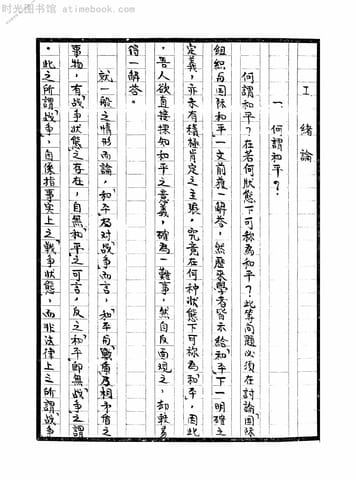 时光图书馆 - atimebook.com
I 緒論
一、何謂和平？
何謂和平？在若何狀態下可称為和平？此等問題必須在討論「国際
組织与国际和平一文前获一解答，然歷來學者皆未給和平下一明確之
定義，亦未有積極肯定之主張，究竟在何种状態下可称為「和平」，因此
，吾人欲直接探知和平之意義，確為一難事，然自反面观之，却較易
得一解答。
就一般之情形而論，「和平」乃对「战争」而言，「和平」与「戰爭」及相矛盾之
事物，有「战争」狀態之存在，自無「和平」之可言，反之「和平」即無「战争」之謂
。此之所謂「战爭」，自係指事実上之戰爭狀態，而非法律上之所謂「战爭